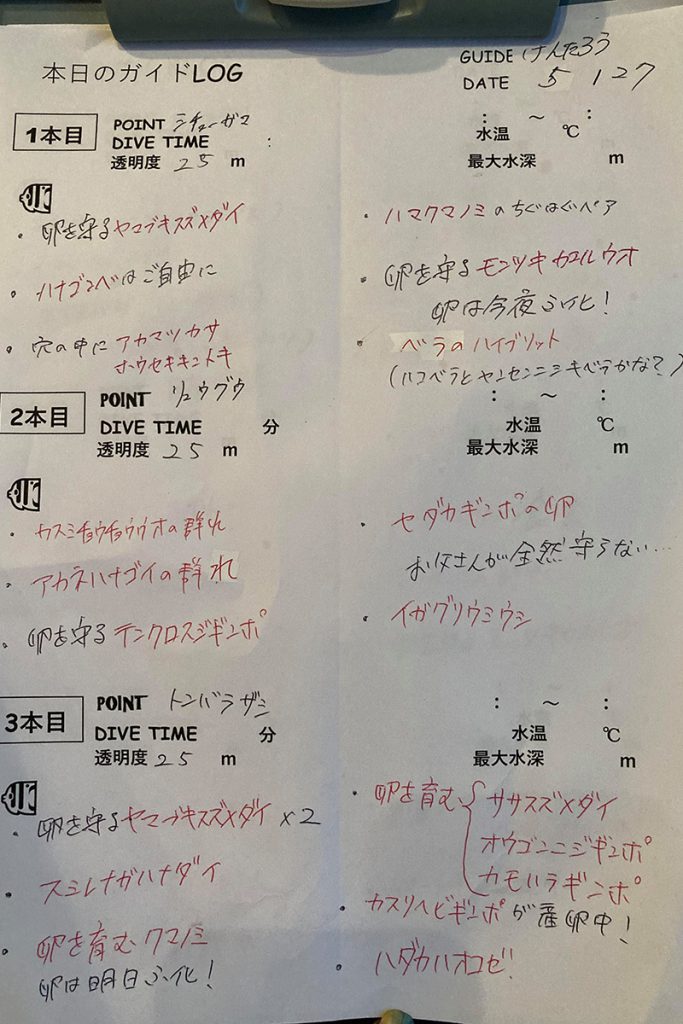 本日のガイドLOG
GUIDE けんたろう
DATE 5 127
1本目
POINT シチューガマ
DIVE TIME :
透明度 25 m
: ～ :
水温 ℃
最大水深 m
・卵を守るヤマブキスズメダイ
・ハナゴンベはご自由に
・穴の中にアカマツカサ
ホウセキキントキ
・ハマクマノミのちぐはぐペア
・卵を守るモンツキカエルウオ
卵は今夜ふ化!
・ベラのハイブリット
(ハコベラとヤンセンニシキベラかな?)
2本目
POINT リュウグウ
DIVE TIME 分
透明度 25 m
: ～ :
水温 ℃
最大水深 m
・カスミチョウチョウウオの群れ
・アカネハナゴイの群れ
・卵を守るテンクロスジギンポ
・セダカギンポの卵
お父さんが全然守らない…
・イガグリウミウシ
3本目
POINT トンバラザシ
DIVE TIME 分
透明度 25 m
: ～ :
水温 ℃
最大水深 m
・卵を守るヤマブキスズメダイ×2
・スミレナガハナダイ
・卵を育むクマノミ
卵は明日ふ化!
・卵を育む{ササスズメダイ
オウゴンニジギンポ
カモハラギンポ
・カスリヘビギンポが産卵中!
・ハダカハオコゼ!